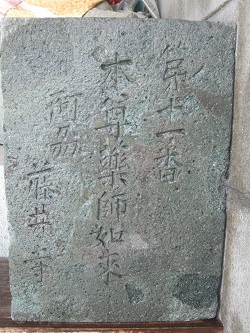 第十一番
本尊薬師如来
阿刕 藤井寺